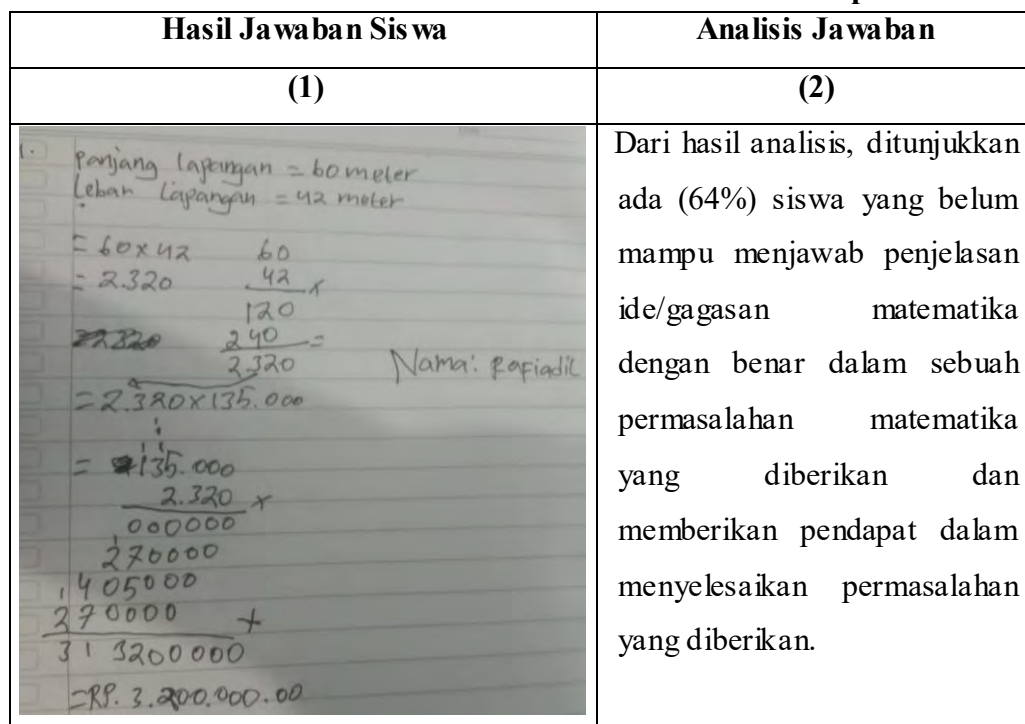 Hasil Jawaban Siswa
Analisis Jawaban
(1)
(2)
1. Panjang lapangan = 60 meter
Lebar Lapangan = 42 meter
= 60 x 42
= 2.320
60
42 x
120
240 =
2.320
Nama: Rafiadil
= 2.320 x 135.000
= 135.000
2.320 x
000000
270000
405000
270000 +
313200000
=RP. 3.200.000.00
Dari hasil analisis, ditunjukkan
ada (64%) siswa yang belum
mampu menjawab penjelasan
ide/gagasan matematika
dengan benar dalam sebuah
permasalahan matematika
yang diberikan dan
memberikan pendapat dalam
menyelesaikan permasalahan
yang diberikan.